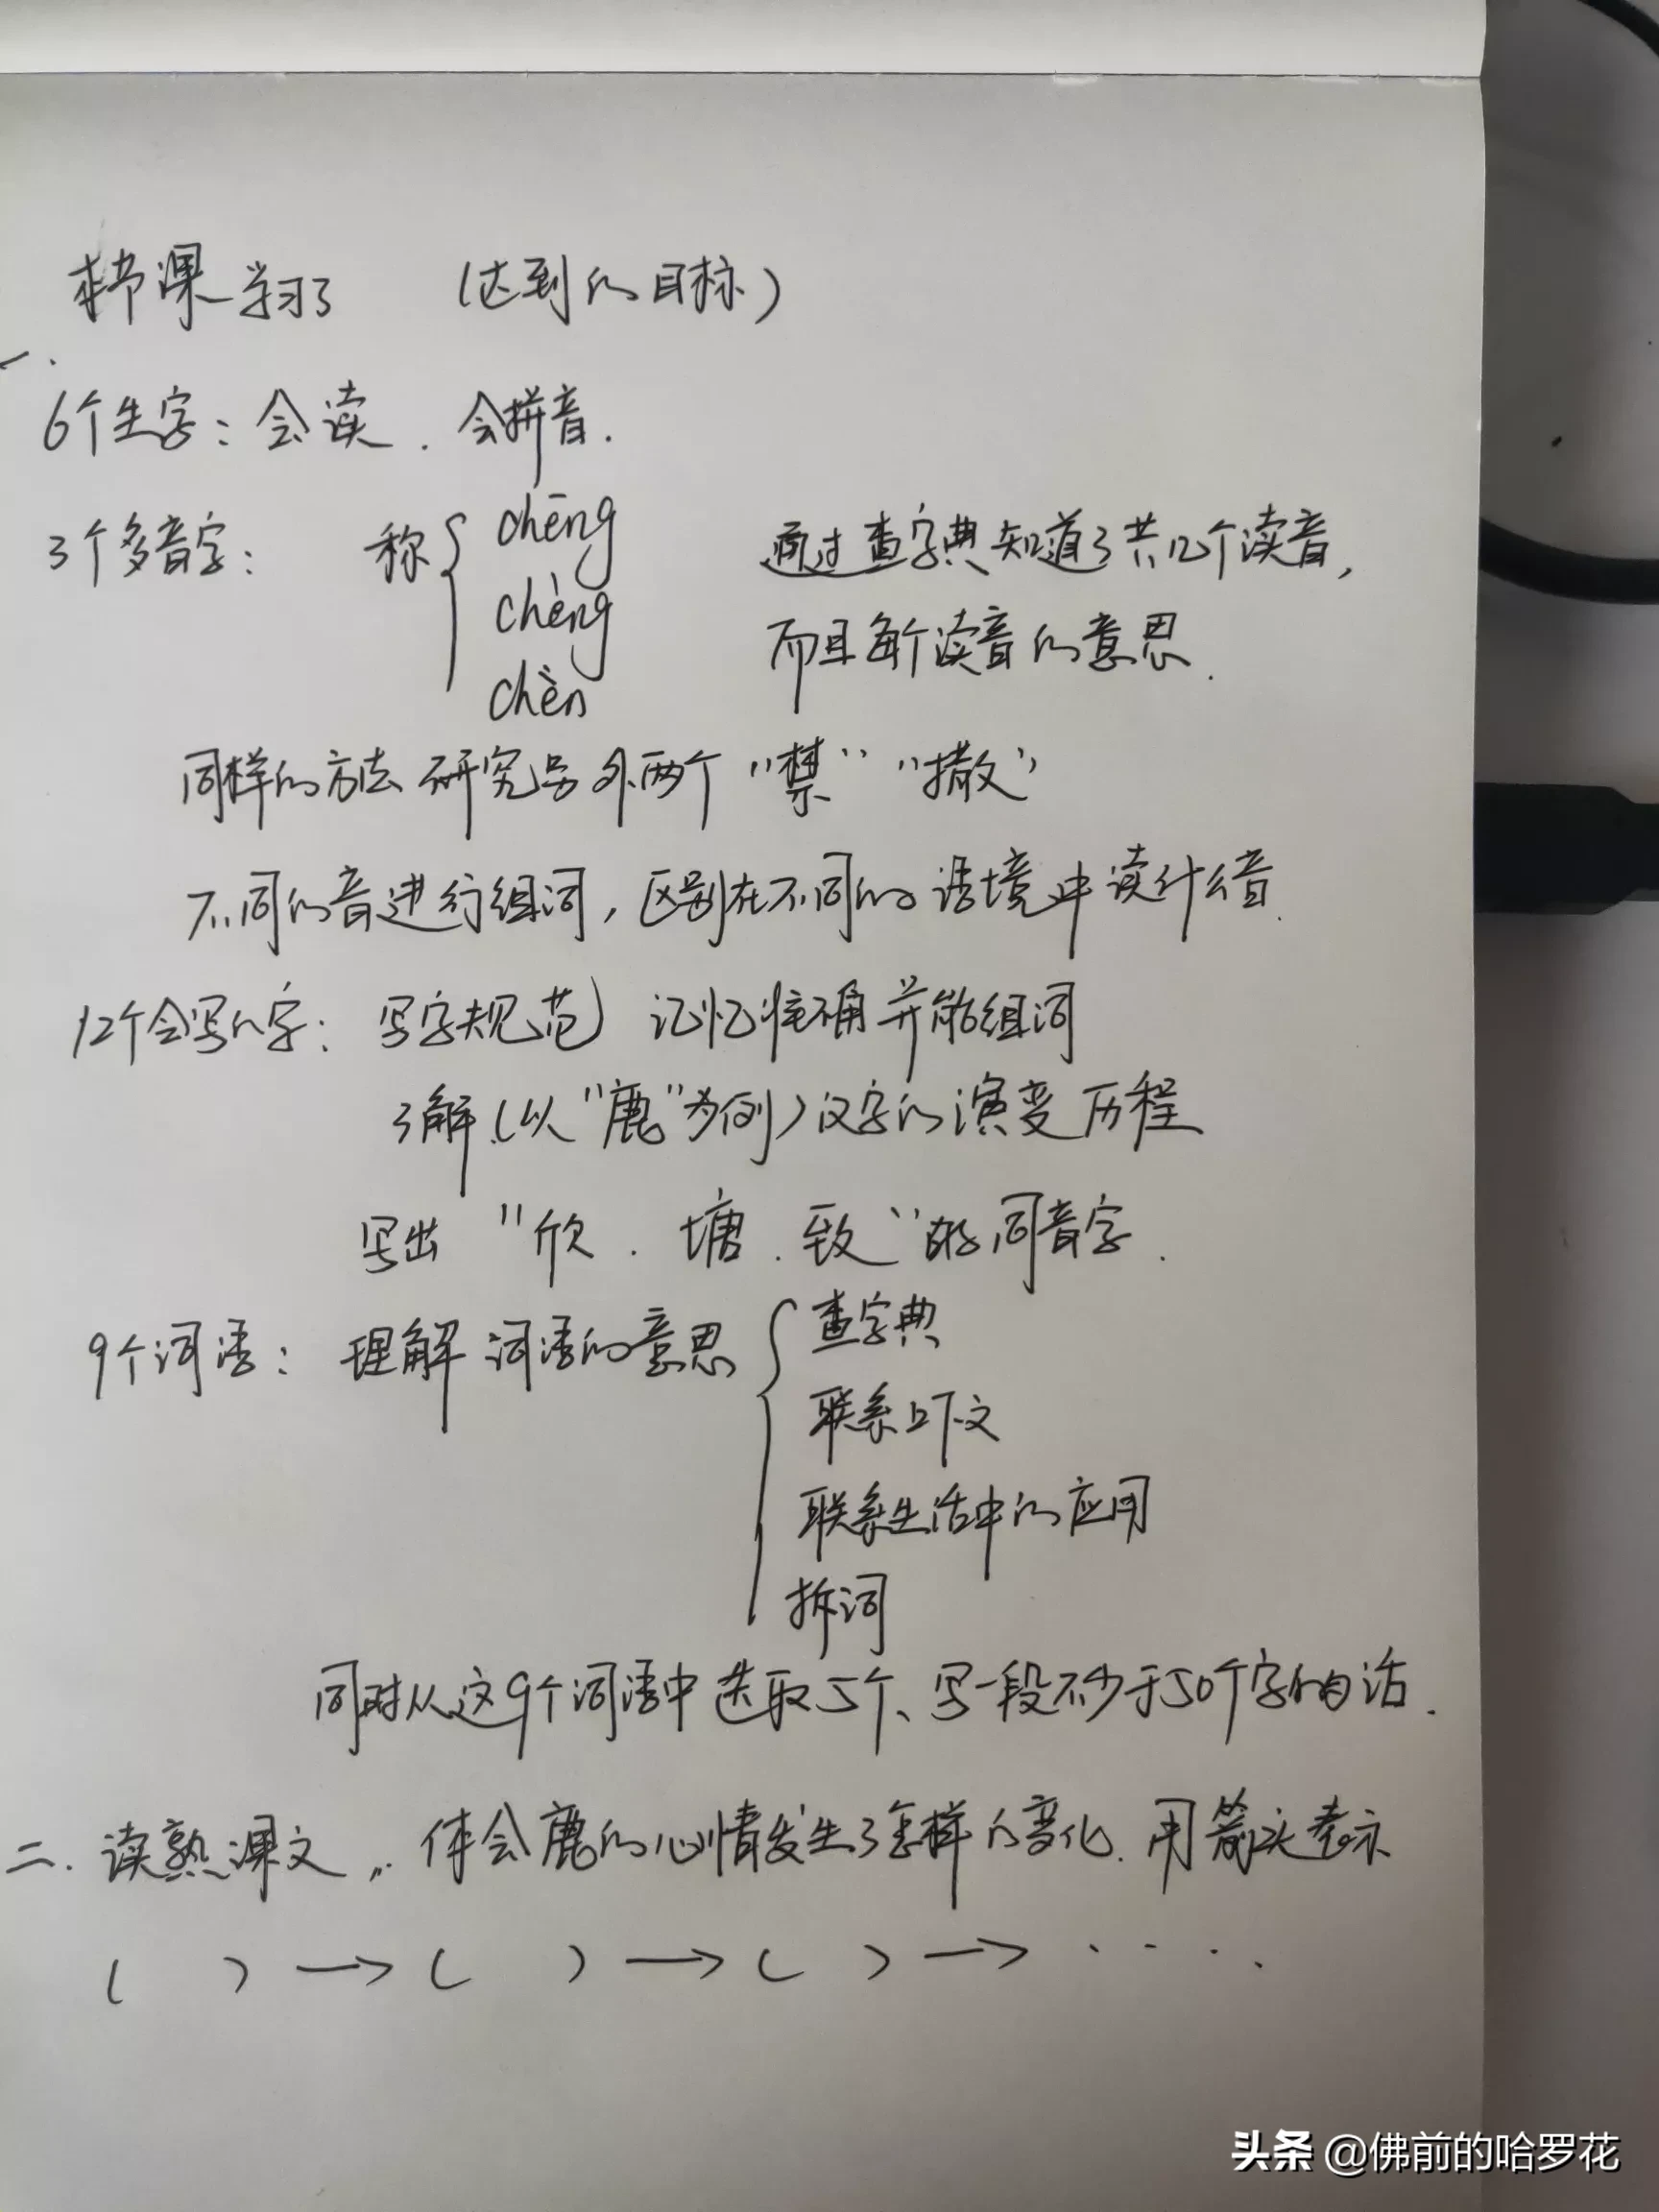 本节课学习了 (达到的目标)
一.
6个生字：会读、会拼音.
3个多音字： 称 { chēng 通过查字典知道了共几个读音，
chèng 而且每个读音的意思.
chèn
同样的方法研究另外两个“禁”“撒”
不同的音进行组词，区别在不同的语境中读什么音.
12个会写的字：写字规范 记忆准确并能组词
了解(以“鹿”为例)汉字的演变历程
写出“欣、塘、致”的同音字.
9个词语：理解词语的意思 { 查字典
联系上下文
联系生活中的应用
拆词
同时从这9个词语中选取5个、写一段不少于50个字的话.
二.读熟课文,体会鹿的心情发生了怎样的变化.用箭头表示
( )→( )→( )→·····
头条 @佛前的哈罗花